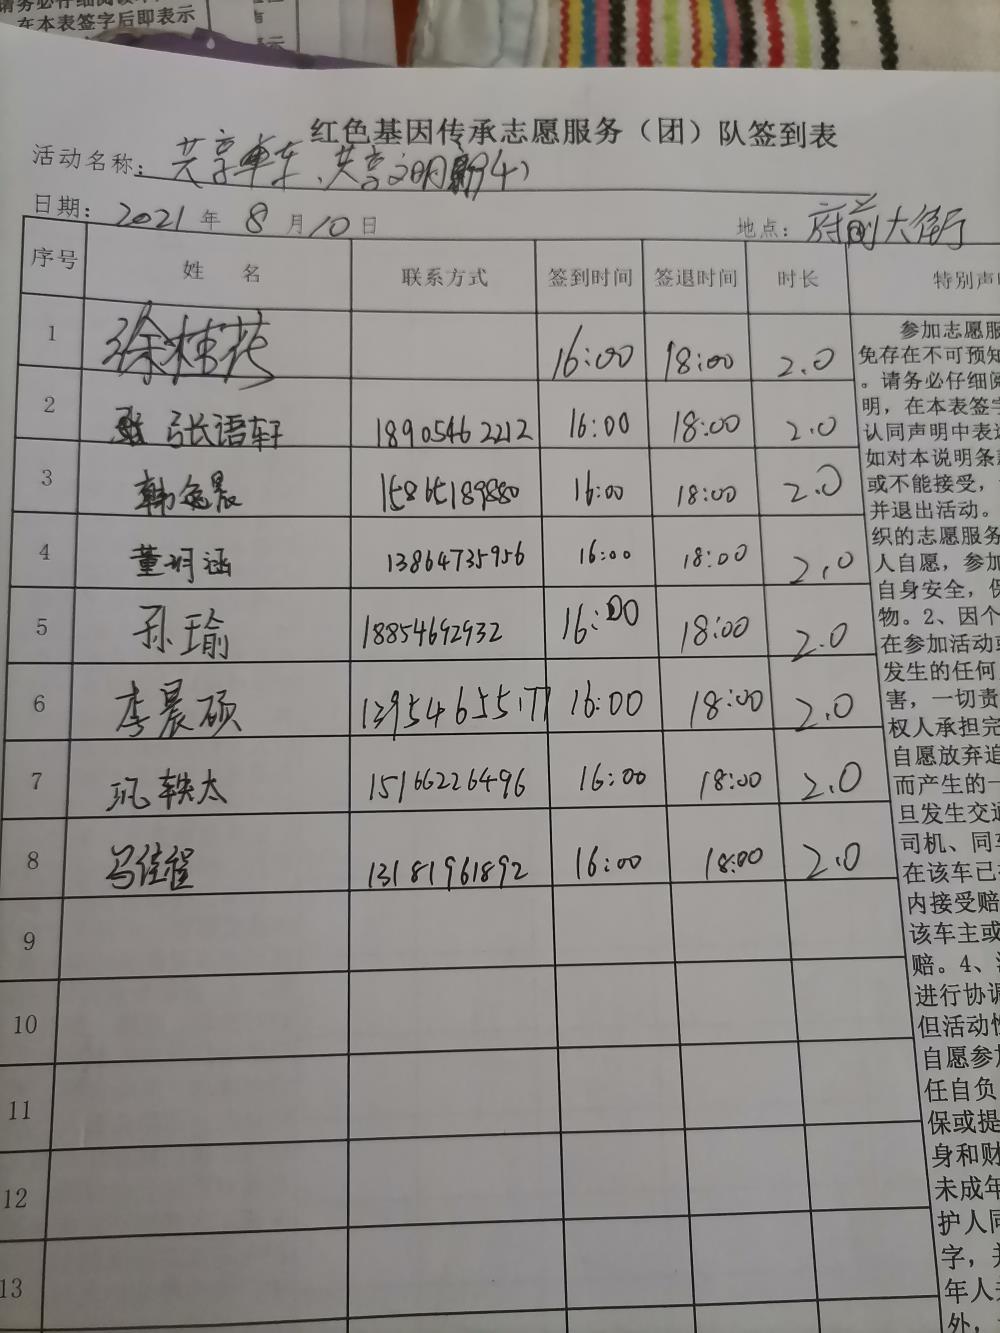 请务必仔细阅读
在本表签字后即表示
红色基因传承志愿服务（团）队签到表
活动名称：共享单车、共享文明
日期：2021年8月10日
地点：府前大街
序号 姓名 联系方式 签到时间 签退时间 时长 特别声明
1 徐桂花 16:00 18:00 2.0
2 张语轩 18905462212 16:00 18:00 2.0
3 韩 晨 15865189880 16:00 18:00 2.0
4 董明涵 13864735956 16:00 18:00 2.0
5 孙瑜 18854692932 16:00 18:00 2.0
6 李晨硕 13954655177 16:00 18:00 2.0
7 巩轶太 15166226496 16:00 18:00 2.0
8 马佳程 13181961892 16:00 18:00 2.0
9
10
11
12
13
参加志愿服
免存在不可预知
。请务必仔细阅
明，在本表签字
认同声明中表述
如对本说明条款
或不能接受，
并退出活动。
织的志愿服务
人自愿，参加
自身安全，保
物。2、因个
在参加活动或
发生的任何
害，一切责
权人承担完
自愿放弃追
而产生的一
旦发生交通
司机、同车
在该车已
内接受赔
该车主或
赔。4、
进行协调
但活动性
自愿参加
任自负
保或提
身和财
未成年
护人同
字，并
年人
外，